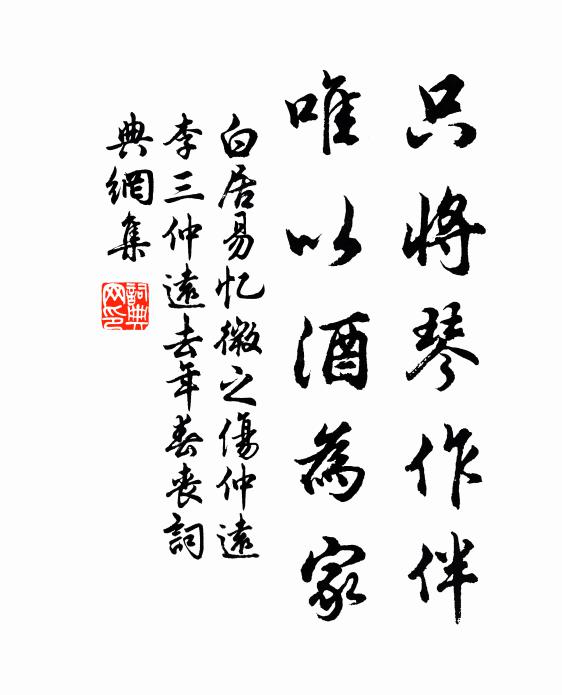 只将琴作伴
唯以酒為家
白居易忆微之傷仲遠
李三仲遠去年春喪詞
典網集
詞典网印